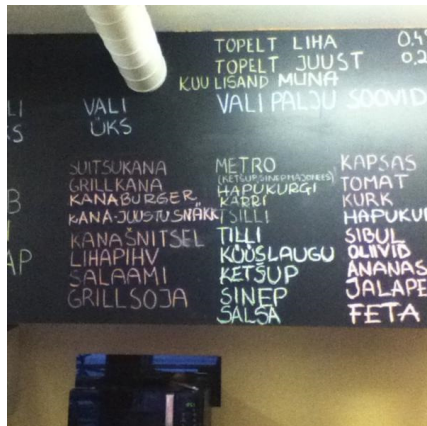 TOPELT LIHA
TOPELT JUUST
KUU LISAND MUNA
VALI
ÜKS
VALI PALJU SOOVID
SUITSUKANA
GRILLKANA
KANABURGER
KANA-JUUSTUSNÄKK
KANAŠNITSEL
LIHAPIHV
SALAAMI
GRILLSOJA
METRO
(KETŠUP, SINEP, MAJONEES)
HAPUKURGI
KARRI
TSILLI
TILLI
KÜÜSLAUGU
KETŠUP
SINEP
SALSA
KAPSAS
TOMAT
KURK
HAPUKU
SIBUL
OLIIVID
ANANAS
JALAPE
FETA